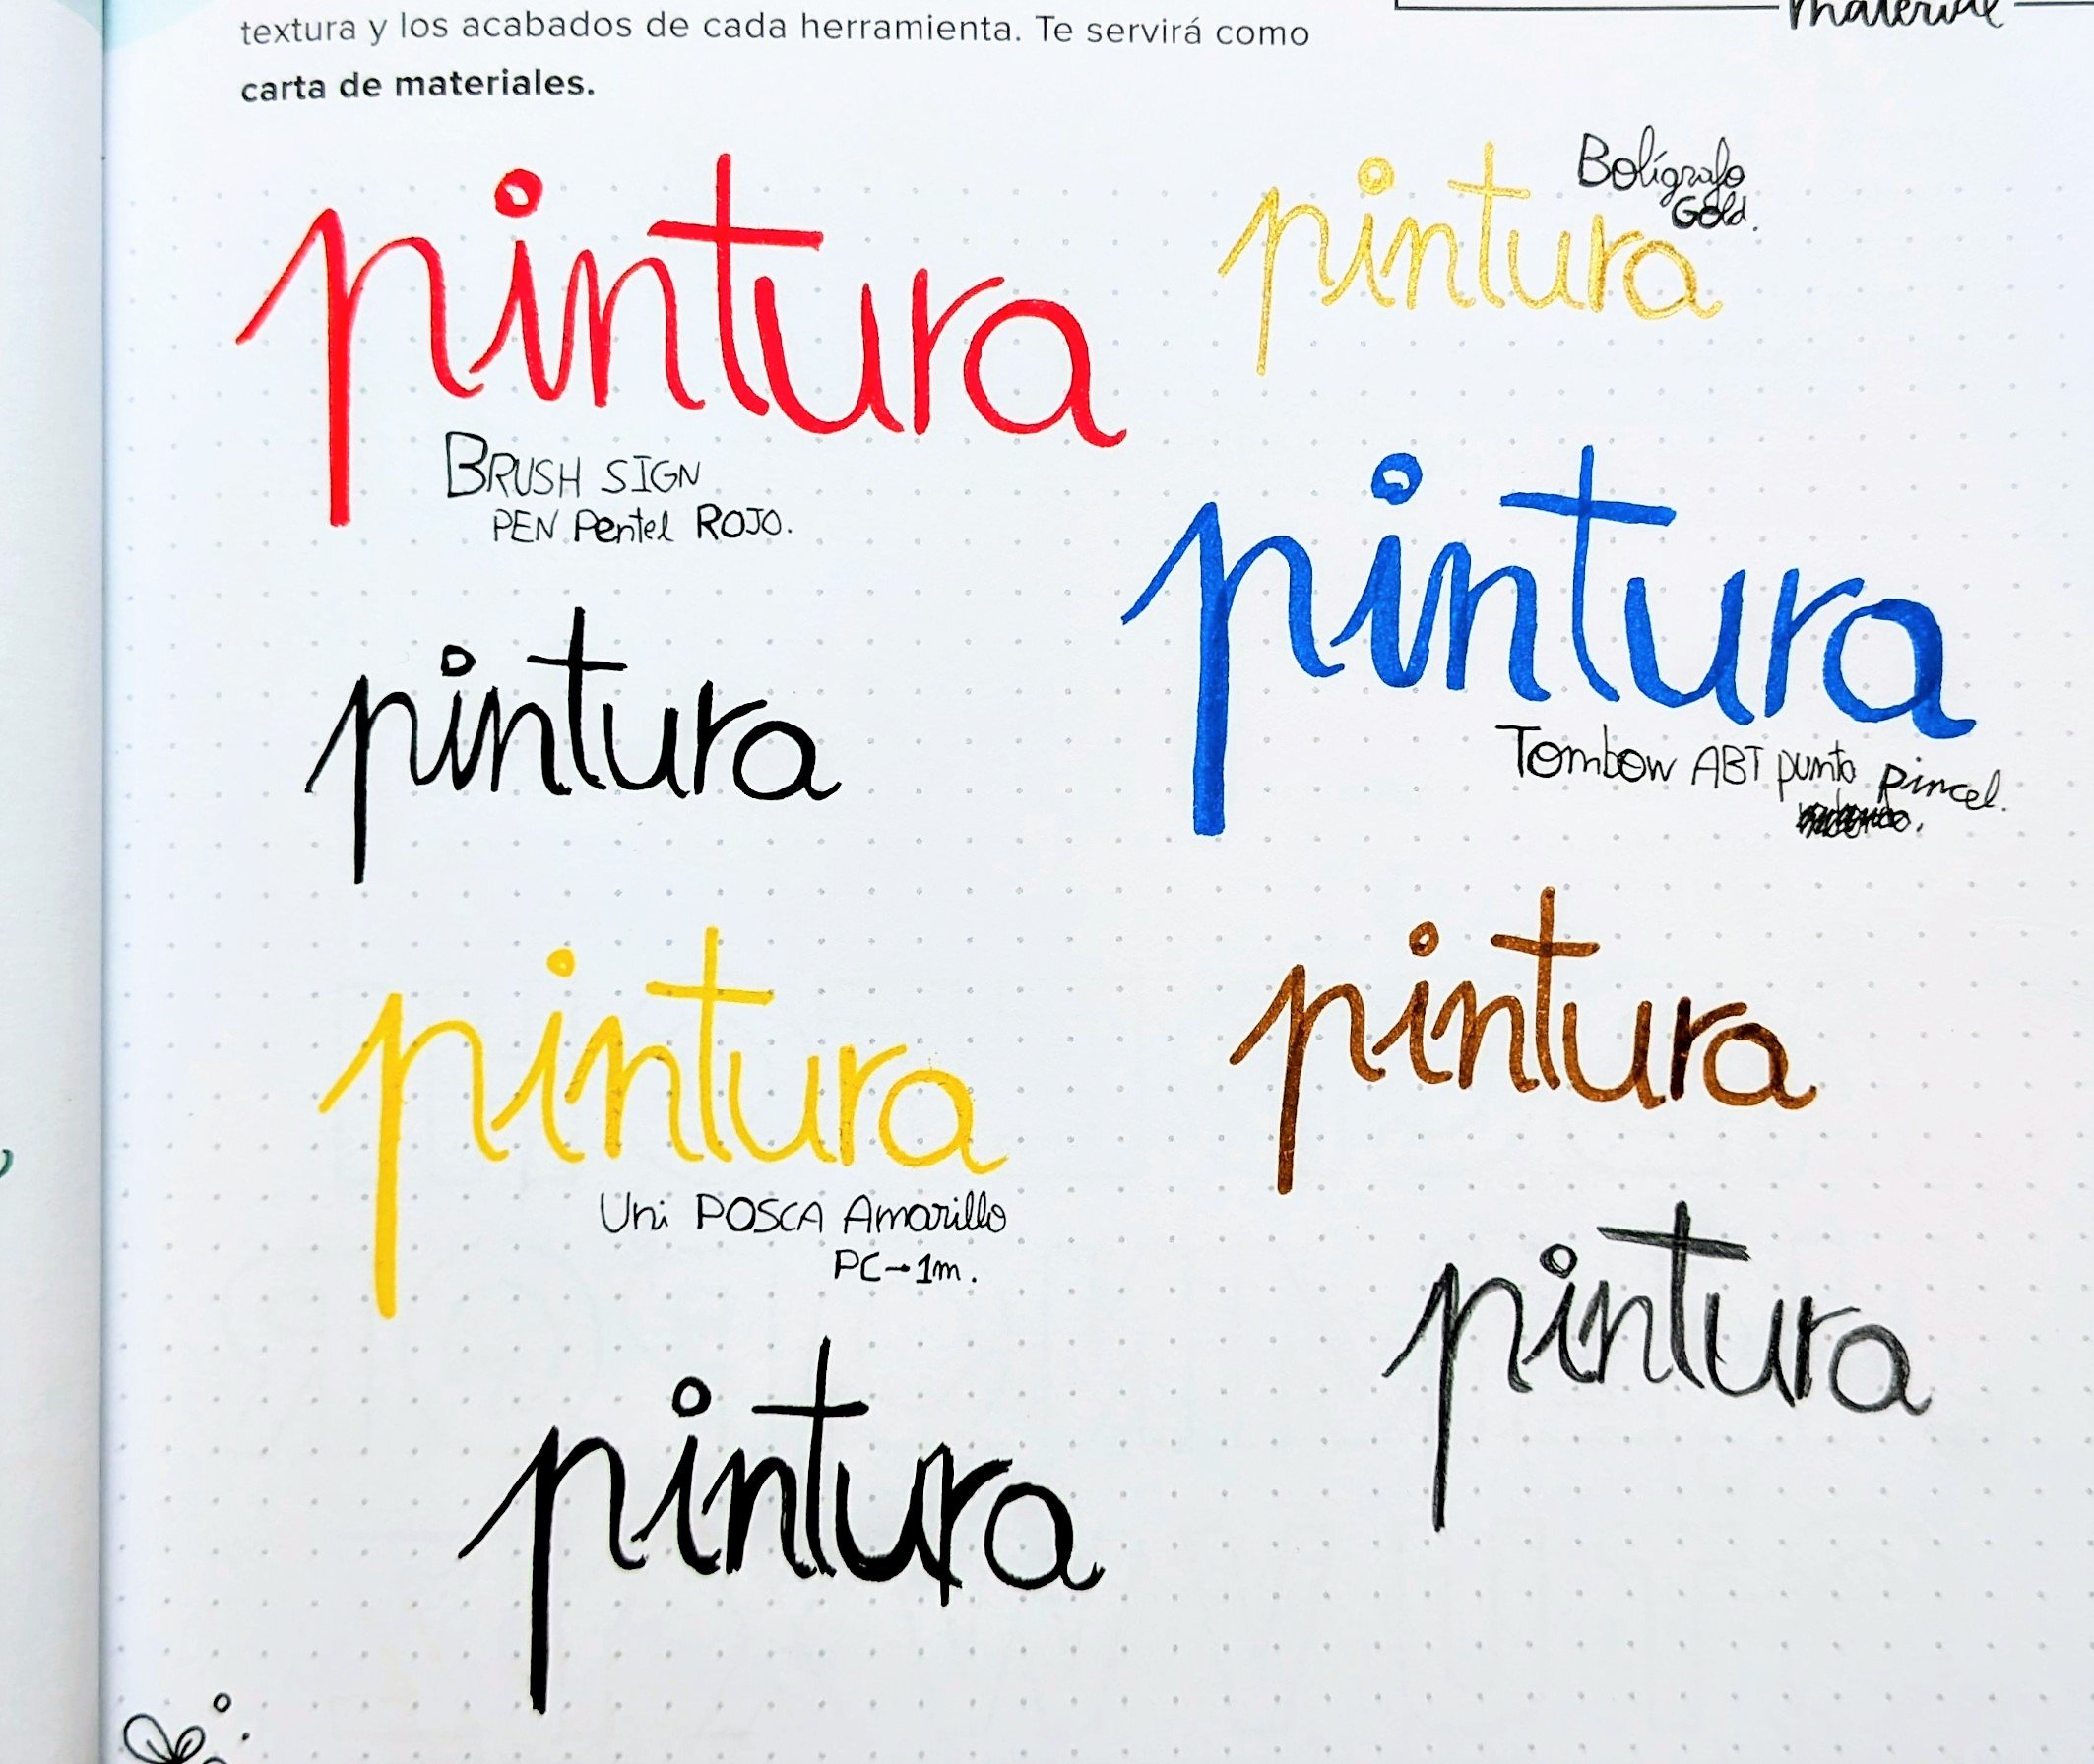 textura y los acabados de cada herramienta. Te servirá como
carta de materiales.
material
pintura
BRUSH SIGN
PEN Pentel ROJO.
pintura
Bolígrafo
Gold.
pintura
pintura
Tombow ABT punta pincel.
pintura
Uni POSCA Amarillo
PC-1m.
pintura
pintura
pintura